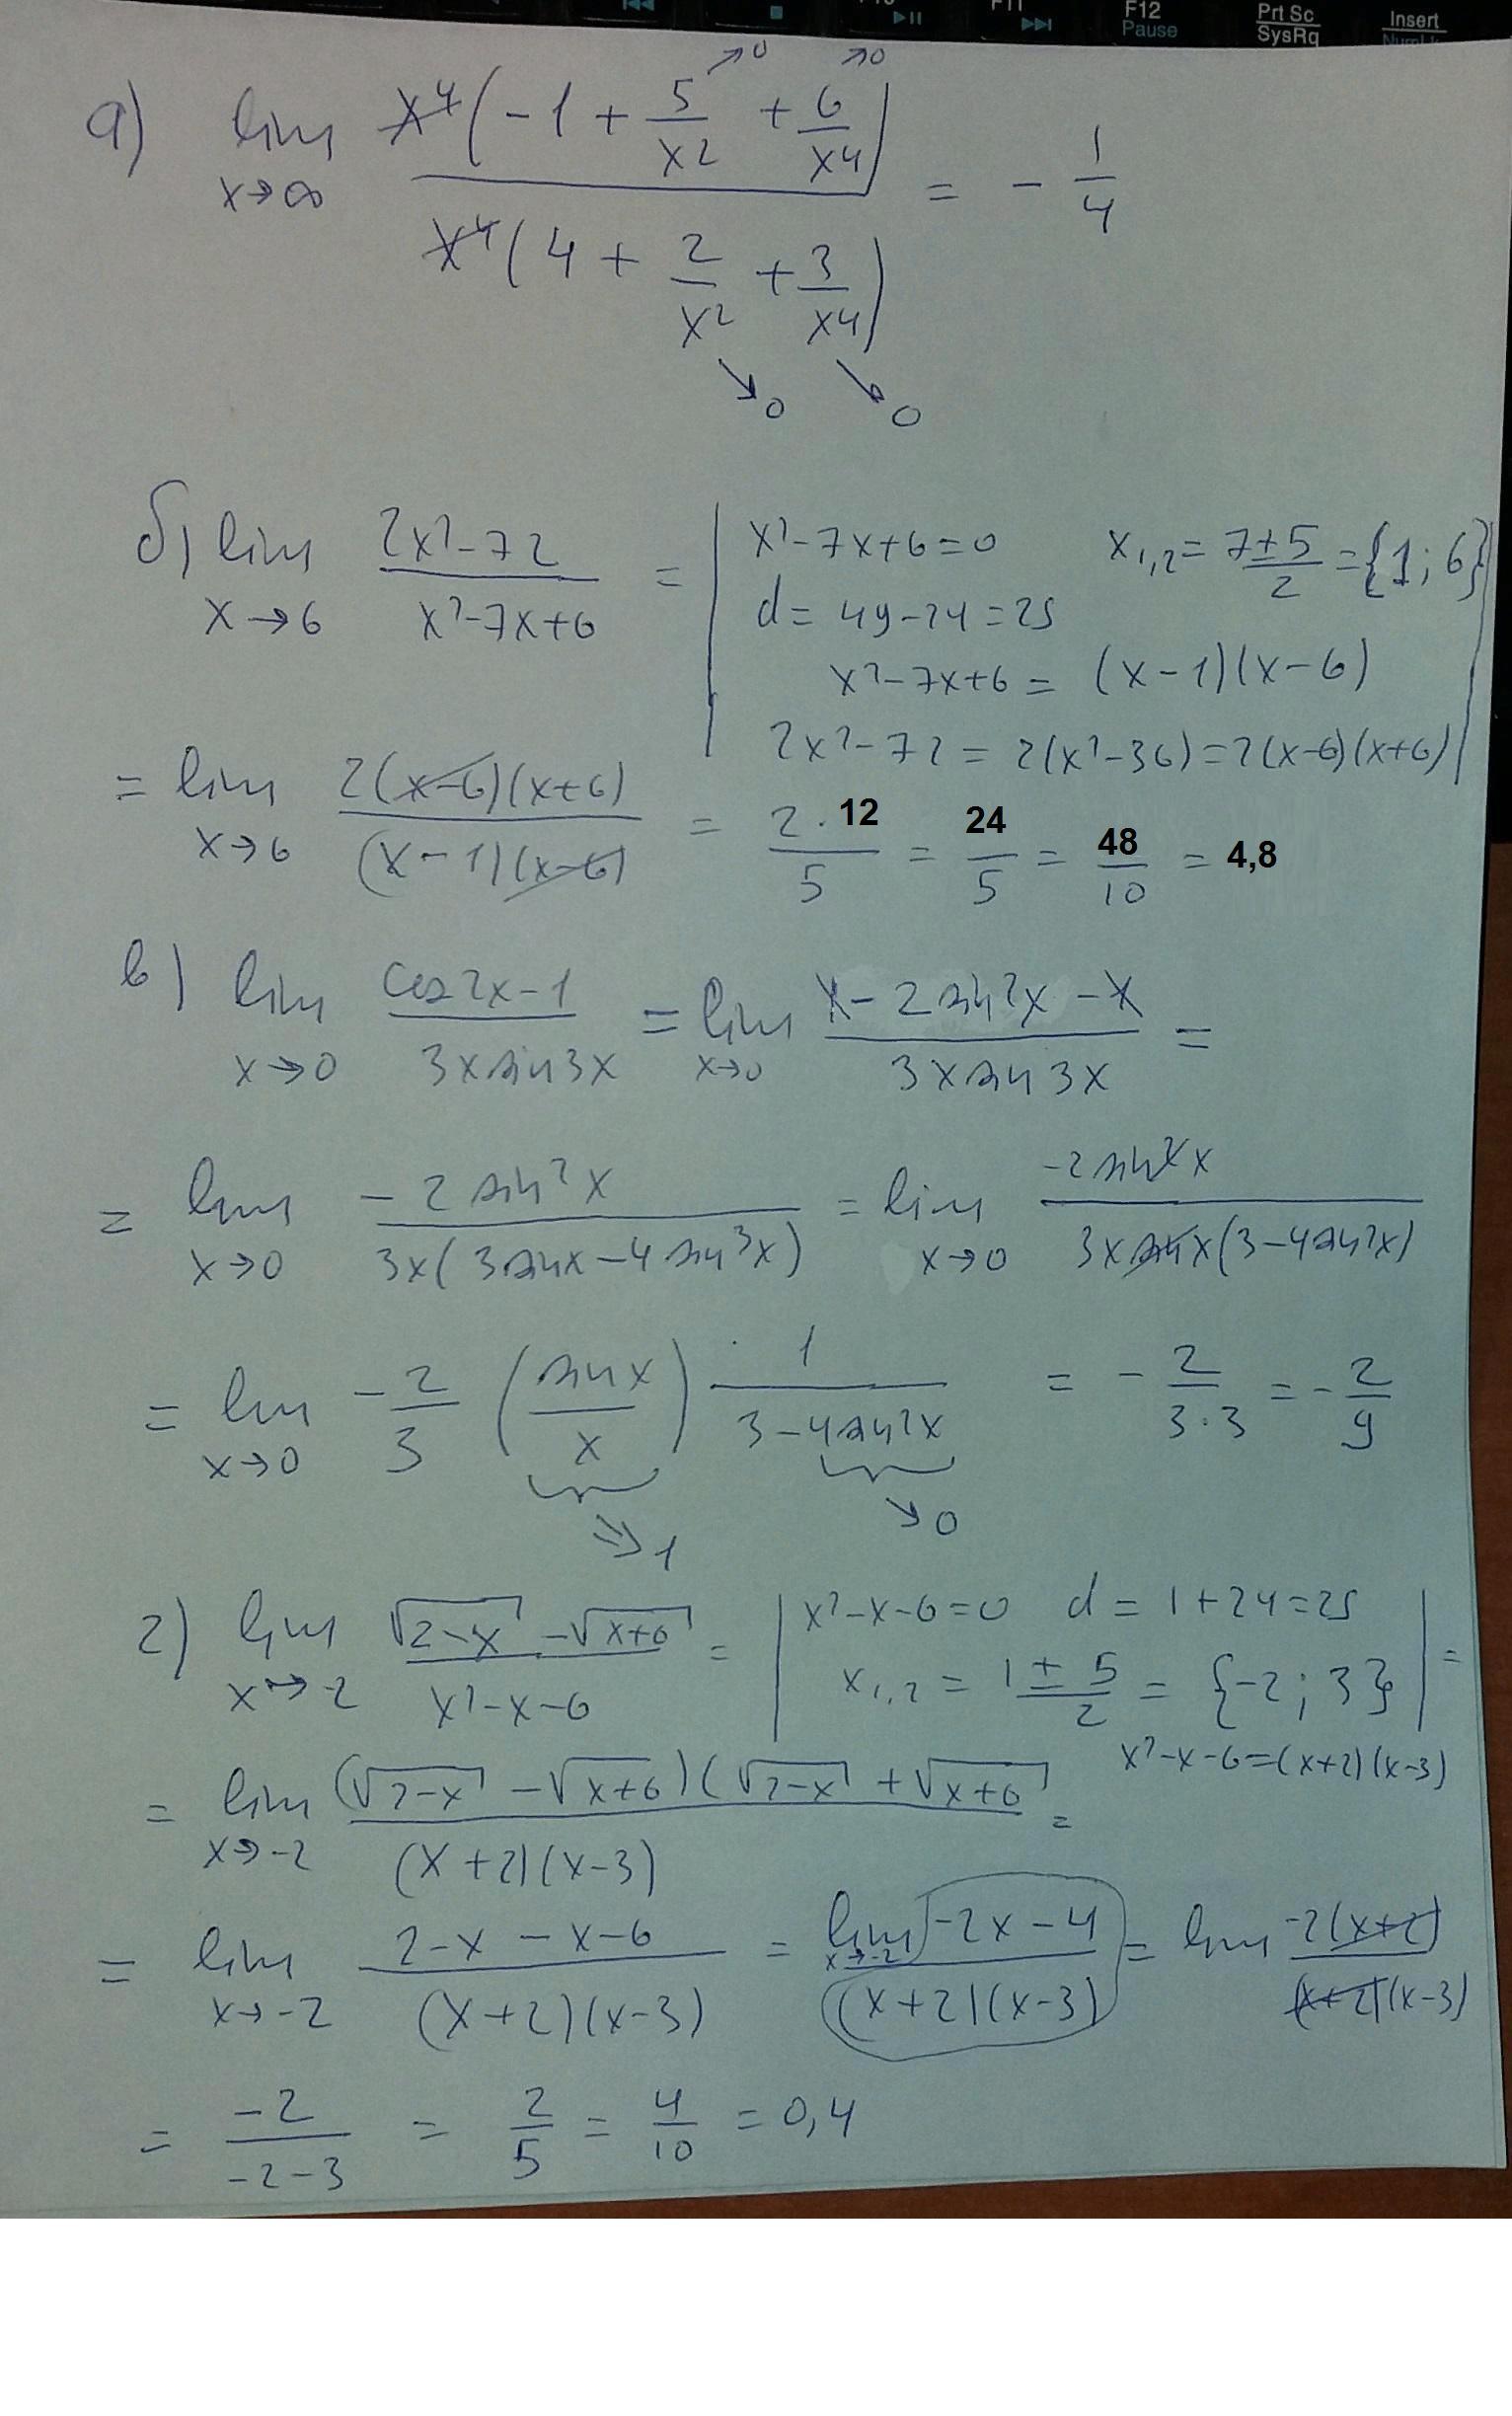 F11 F12 Prt Sc Insert
Pause SysRq
→0 →0
а) lim x⁴(-1 + 5/x² + 6/x⁴) / x⁴(4 + 2/x² + 3/x⁴) = - 1/4
x→∞
→0 →0
б) lim (2x²-72)/(x²-7x+6) = | x²-7x+6=0 x₁,₂ = (7±5)/2 = {1; 6}
x→6
d = 49-24 = 25
x²-7x+6 = (x-1)(x-6)
2x²-72 = 2(x²-36) = 2(x-6)(x+6) |
= lim 2(x-6)(x+6) / (x-1)(x-6) = 2·12/5 = 24/5 = 48/10 = 4,8
x→6
в) lim (cos2x-1)/(3x sin3x) = lim (1-2sin²x-1)/(3x sin3x) =
x→0 x→0
= lim -2sin²x / 3x(3sinx-4sin³x) = lim -2sin²x / 3x sinx(3-4sin²x)
x→0 x→0
= lim -2/3 (sinx/x) · 1/(3-4sin²x) = - 2/(3·3) = - 2/9
x→0
→1 →0
г) lim (√(2-x) - √(x+6))/(x²-x-6) = | x²-x-6=0 d = 1+24=25
x→-2
x₁,₂ = (1±5)/2 = {-2; 3} | =
x²-x-6=(x+2)(x-3)
= lim (√(2-x) - √(x+6))(√(2-x) + √(x+6)) / (x+2)(x-3) =
x→-2
= lim (2-x-x-6)/((x+2)(x-3)) = lim (-2x-4)/((x+2)(x-3)) = lim -2(x+2)/((x+2)(x-3))
x→-2 x→-2
= -2/(-2-3) = 2/5 = 4/10 = 0,4